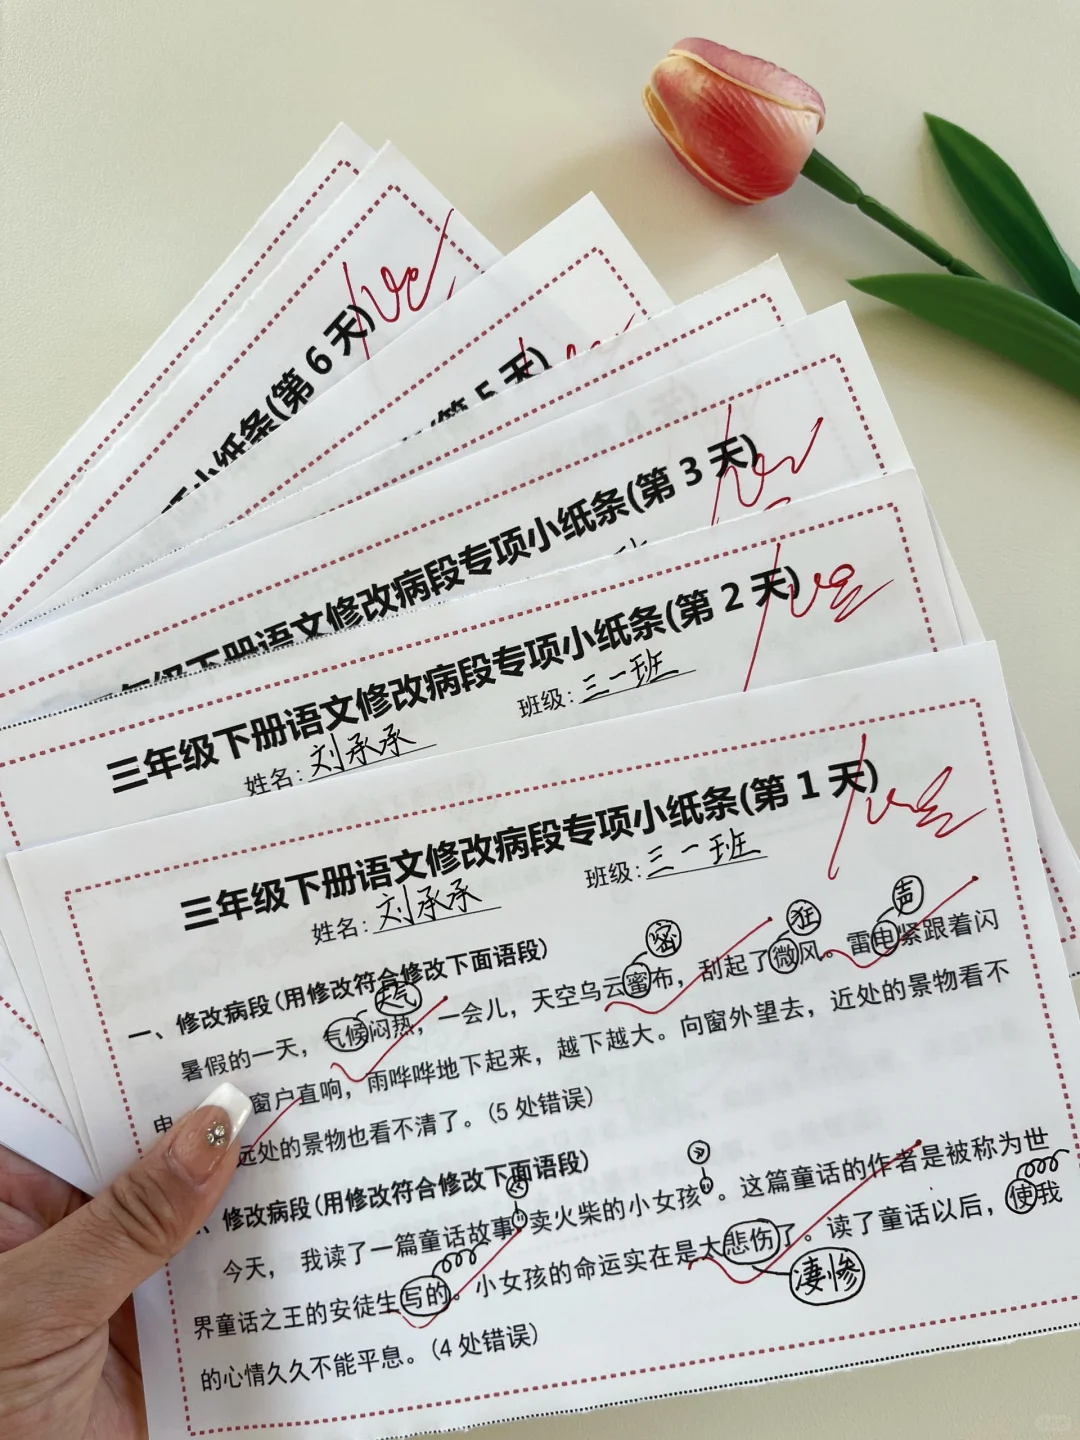 小纸条(第 6 天)
(第 5 天)
三年级下册语文修改病段专项小纸条(第 3 天)
三年级下册语文修改病段专项小纸条(第 2 天)
姓名: 刘承承 班级: 三一班
三年级下册语文修改病段专项小纸条(第 1 天)
姓名: 刘承承 班级: 三一班
一、修改病段(用修改符合修改下面语段)
天气 密 狂 声
暑假的一天，气候闷热，一会儿，天空乌云蜜布，刮起了微风。雷电紧跟着闪
电 窗户直响，雨哗哗地下起来，越下越大。向窗外望去，近处的景物看不
远处的景物也看不清了。(5 处错误)
、修改病段(用修改符合修改下面语段)
《 》
今天， 我读了一篇童话故事"卖火柴的小女孩"。这篇童话的作者是被称为世
界童话之王的安徒生写的。小女孩的命运实在是太悲伤了。读了童话以后，使我
凄惨
的心情久久不能平息。(4 处错误)